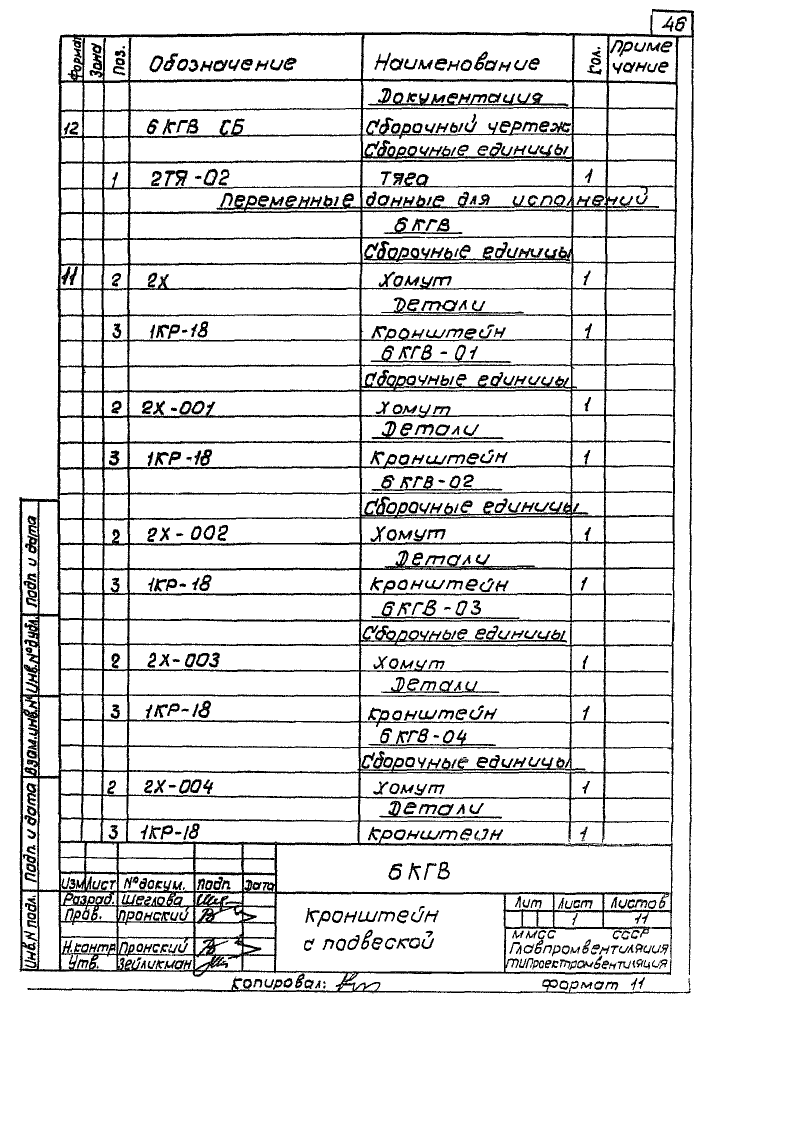 46
Формат Зона Поз. Обозначение Наименование Кол. Приме чание
Документация
12 6КГВ СБ Сборочный чертеж
Сборочные единицы
1 2ТЯ-02 Тяга 1
Переменные данные для исполнений
6КГВ
Сборочные единицы
11 2 2Х Хомут 1
Детали
3 1КР-18 Кронштейн 1
6КГВ-01
Сборочные единицы
2 2Х-001 Хомут 1
Детали
3 1КР-18 Кронштейн 1
6КГВ-02
Сборочные единицы
2 2Х-002 Хомут 1
Детали
3 1КР-18 Кронштейн 1
6КГВ-03
Сборочные единицы
2 2Х-003 Хомут 1
Детали
3 1КР-18 Кронштейн 1
6КГВ-04
Сборочные единицы
2 2Х-004 Хомут 1
Детали
3 1КР-18 Кронштейн 1
Инв.N подл. Подп. и дата Взам.инв.№ Инв.№дубл. Подп. и дата
6КГВ
Изм Лист №докум. Подп. Дата
Разраб. Щеглова
Пров. Пронский
Н.контр Пронский
Утв. Зейликман
Кронштейн
с подвеской
Лит Лист Листов
1 11
ММСС СССР
Главпромвентиляция
ГИПроектпромвентиляция
Копировал:
Формат 11